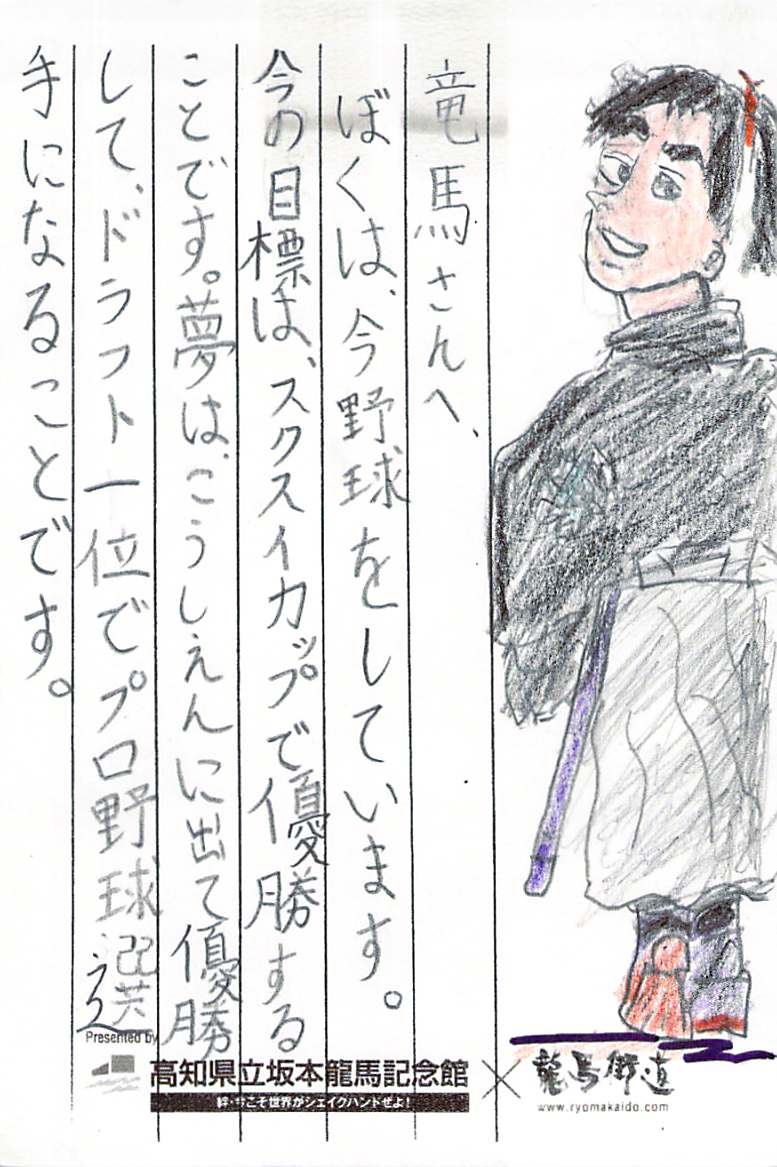 竜馬さんへ、
ぼくは、今野球をしています。
今の目標は、スクスイカップで優勝する
ことです。夢は、こうしえんに出て優勝
して、ドラフト一位でプロ野球選
手になることです。
Presented by
高知県立坂本龍馬記念館
絆・今こそ世界がシェイクハンドぜよ！
×
龍馬街道
www.ryomakaido.com